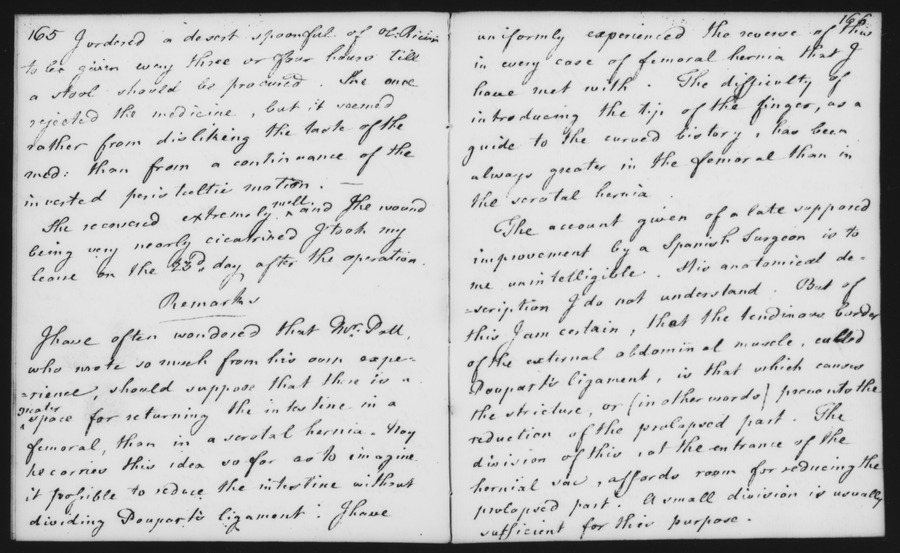 165
I ordered a desert spoonful of Ol: Ricini
to be given every three or four hours till
a stool should be procured. She once
rejected the medicine, but it seemed
rather from disliking the taste of the
med: than from a continuance of the
inverted peristaltic motion. —
She recovered extremely well and the wound
being very nearly cicatrised I took my
leave on the 23d. day after the operation.
Remarks
I have often wondered that Mr. Pott,
who wrote so much from his own expe-
-rience, should suppose that there is a
greater space for returning the intestine in a
femoral, than in a scrotal hernia. Nay
he carries this idea so far as to imagine
it possible to reduce the intestine without
dividing Poupart's ligament. I have
166
uniformly experienced the reverse of this
in every case of femoral hernia that I
have met with. The difficulty of
introducing the tip of the finger, as a
guide to the curved bistory, has been
always greater in the femoral than in
the scrotal hernia.
The account given of a late supposed
improvement by a Spanish Surgeon is to
me unintelligible. His anatomical de-
-scription I do not understand. But of
this I am certain, that the tendinous border
of the external abdominal muscle, called
Poupart's ligament, is that which causes
the stricture, or (in other words) prevents the
reduction of the prolapsed part. The
division of this, at the entrance of the
hernial sac, affords room for reducing the
prolapsed part. A small division is usually
sufficient for this purpose.